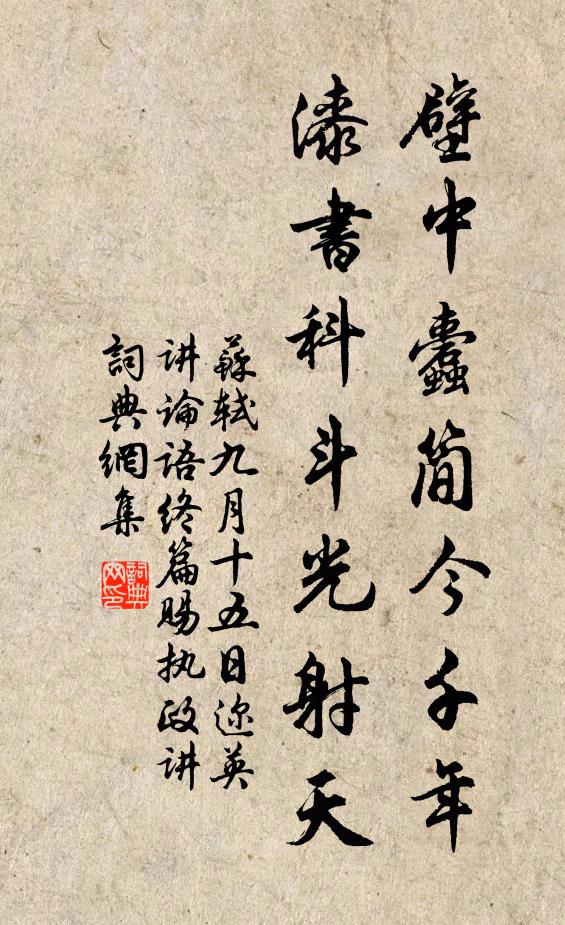 壁中蠹简今千年
漆書科斗光射天
蘇軾九月十五日迩英
讲論语终篇賜执政讲
詞典網集
詞典网印